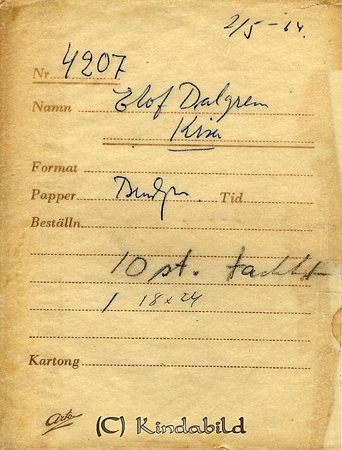 2/5-64.
Nr 4207
Namn Elof Dalgren
Kisa
Format
Papper Tid
Beställn.
10 st.
1 18x24
Kartong
Ark
(C) Kindabild